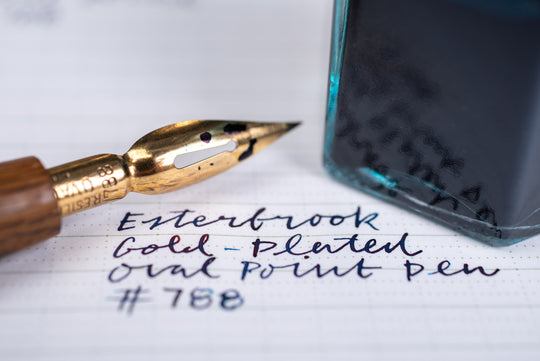 Esterbrook
Gold-Plated
Oval Point Pen
#788